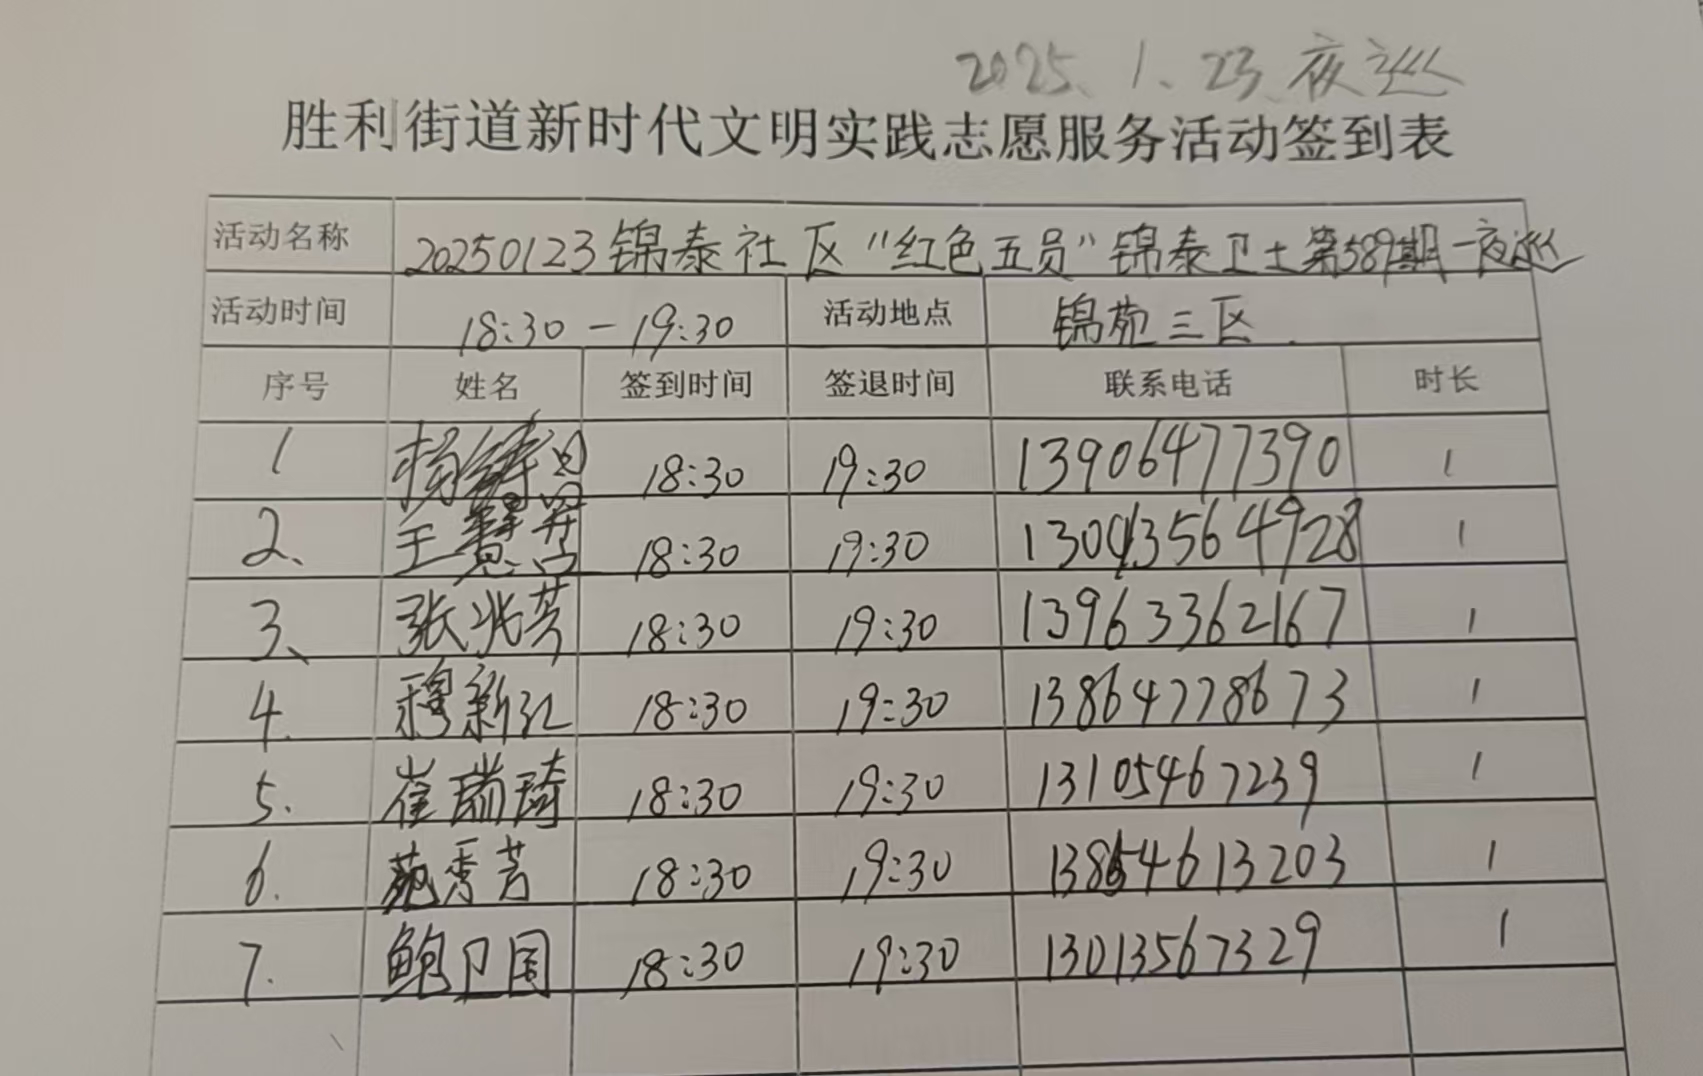 2025.1.23.夜巡
胜利街道新时代文明实践志愿服务活动签到表
活动名称 20250123锦泰社区“红色五员”锦泰卫士第589期-夜巡
活动时间 18:30-19:30 活动地点 锦苑三区.
序号 姓名 签到时间 签退时间 联系电话 时长
1 杨 18:30 19:30 13906477390 1
2、 王慧 18:30 19:30 1
3、 张兆芳 18:30 19:30 13963362167 1
4. 穆新红 18:30 19:30 13864778673 1
5. 崔瑞琦 18:30 19:30 13105467239 1
6. 苑秀芳 18:30 19:30 13854613203 1
7. 鲍卫国 18:30 19:30 13013567329 1